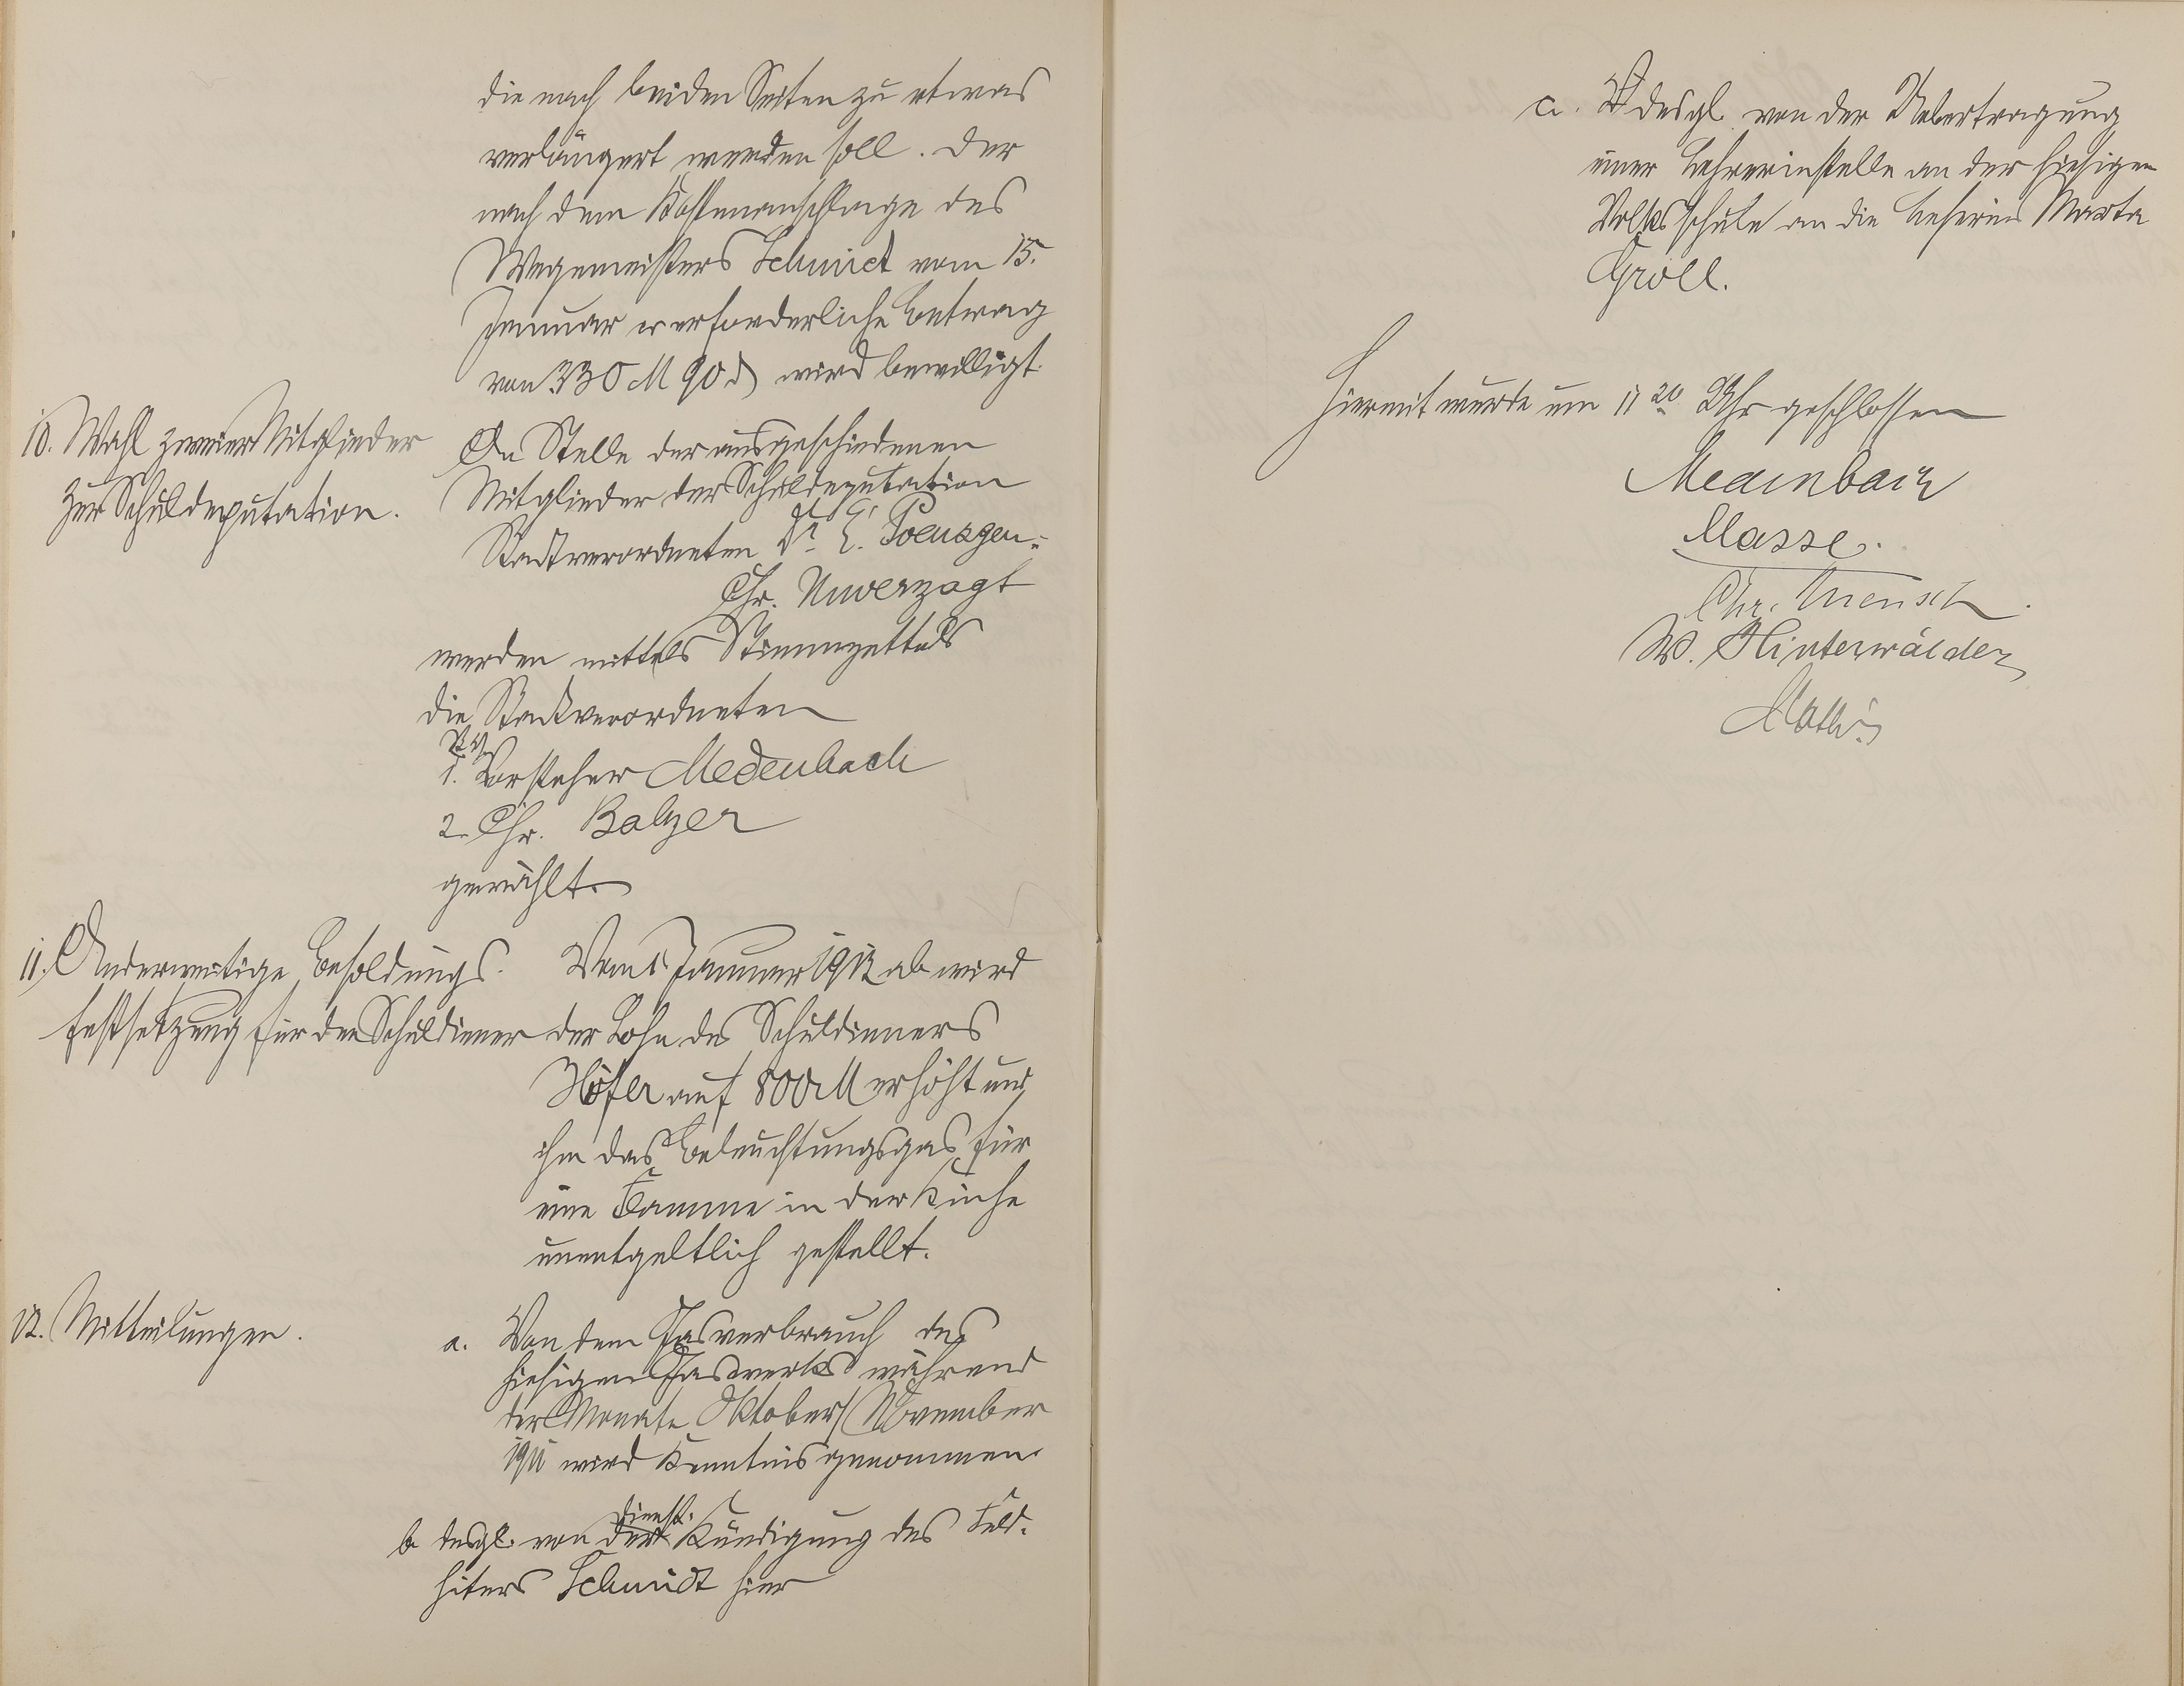 die nach beiden Seiten zu etwas
verlängert werden soll. Der
nach dem Kostenanschlage des
Wegemeisters Schmidt vom 15.
Januar er erforderliche Betrag
von 330 M 90 ₰ wird bewilligt.
10. Wahl zweier Mitglieder
zur Schuldeputation.
An Stelle der ausgeschiedenen
Mitglieder der Schuldeputation
Stadtverordneten Dr. E. Poensgen
Chr. Unverzagt
werden mittels Stimmzettels
die Stadtverordneten
1. Vorsteher Medenbach
2. Chr. Balzer
gewählt.
11. Anderweitige Besoldungs-
festsetzung für den Schuldiener
Vom 1. Januar 1912 ab wird
der Lohn des Schuldieners
Höfer auf 800 M erhöht und
ihm das Beleuchtungsgas für
eine Flamme in der Küche
unentgeltlich gestellt.
12. Mitteilungen.
a. Von dem Gasverbrauch des
hiesigen Gaswerks während
der Monate Oktober/November
1911 wird Kenntnis genommen.
b desgl. von der Dienst-Kündigung des Feld-
hüters Schmidt hier
c. desgl. von der Uebertragung
einer Lehrerinstelle an der hiesigen
Volksschule an die Lehrerin Marta
Groll.
Hiermit wurde um 11 20 Uhr geschlossen
Medenbach
Masse.
Chr. Mensch.
W. Hinterwälder